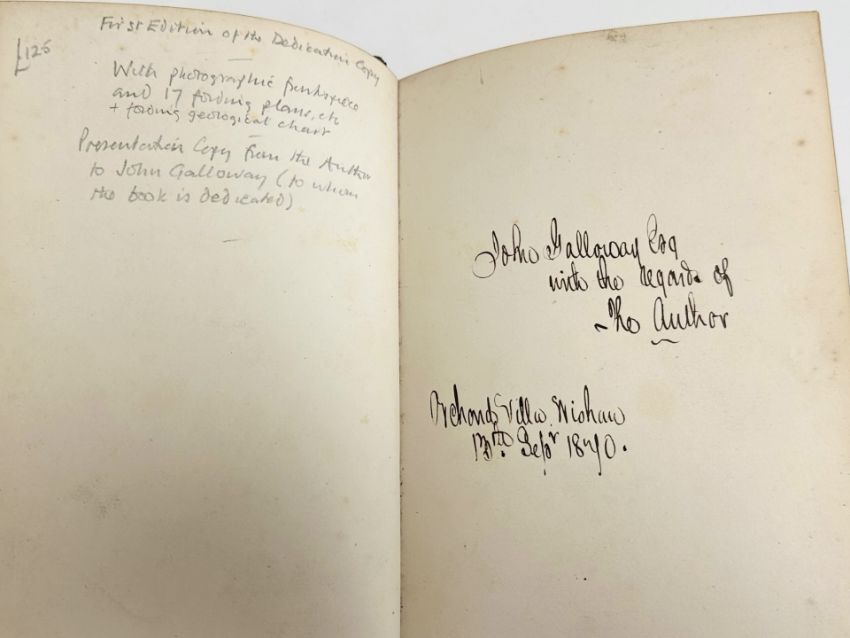 £125
First Edition of the Dedication Copy
With photographic frontispiece
and 17 folding plans, etc
+ folding geological chart
Presentation Copy from the Author
to John Galloway (to whom
the book is dedicated)
John Galloway Esq
with the regards of
The Author
Orchard Villa. Wishaw
13th. Sepr 1870.